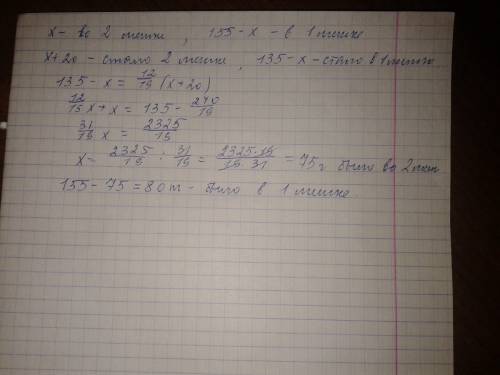 x - во 2 мешке , 155 - x - в 1 мешке
x + 20 - стало 2 мешке , 135 - x - стало в 1 мешке
135 - x = 12/19 (x + 20)
12/19 x + x = 135 - 240/19
31/19 x = 2325/19
x = 2325/19 : 31/19 = 2325·19/19·31 = 75 г было во 2 мешке
155 - 75 = 80 т - было в 1 мешке